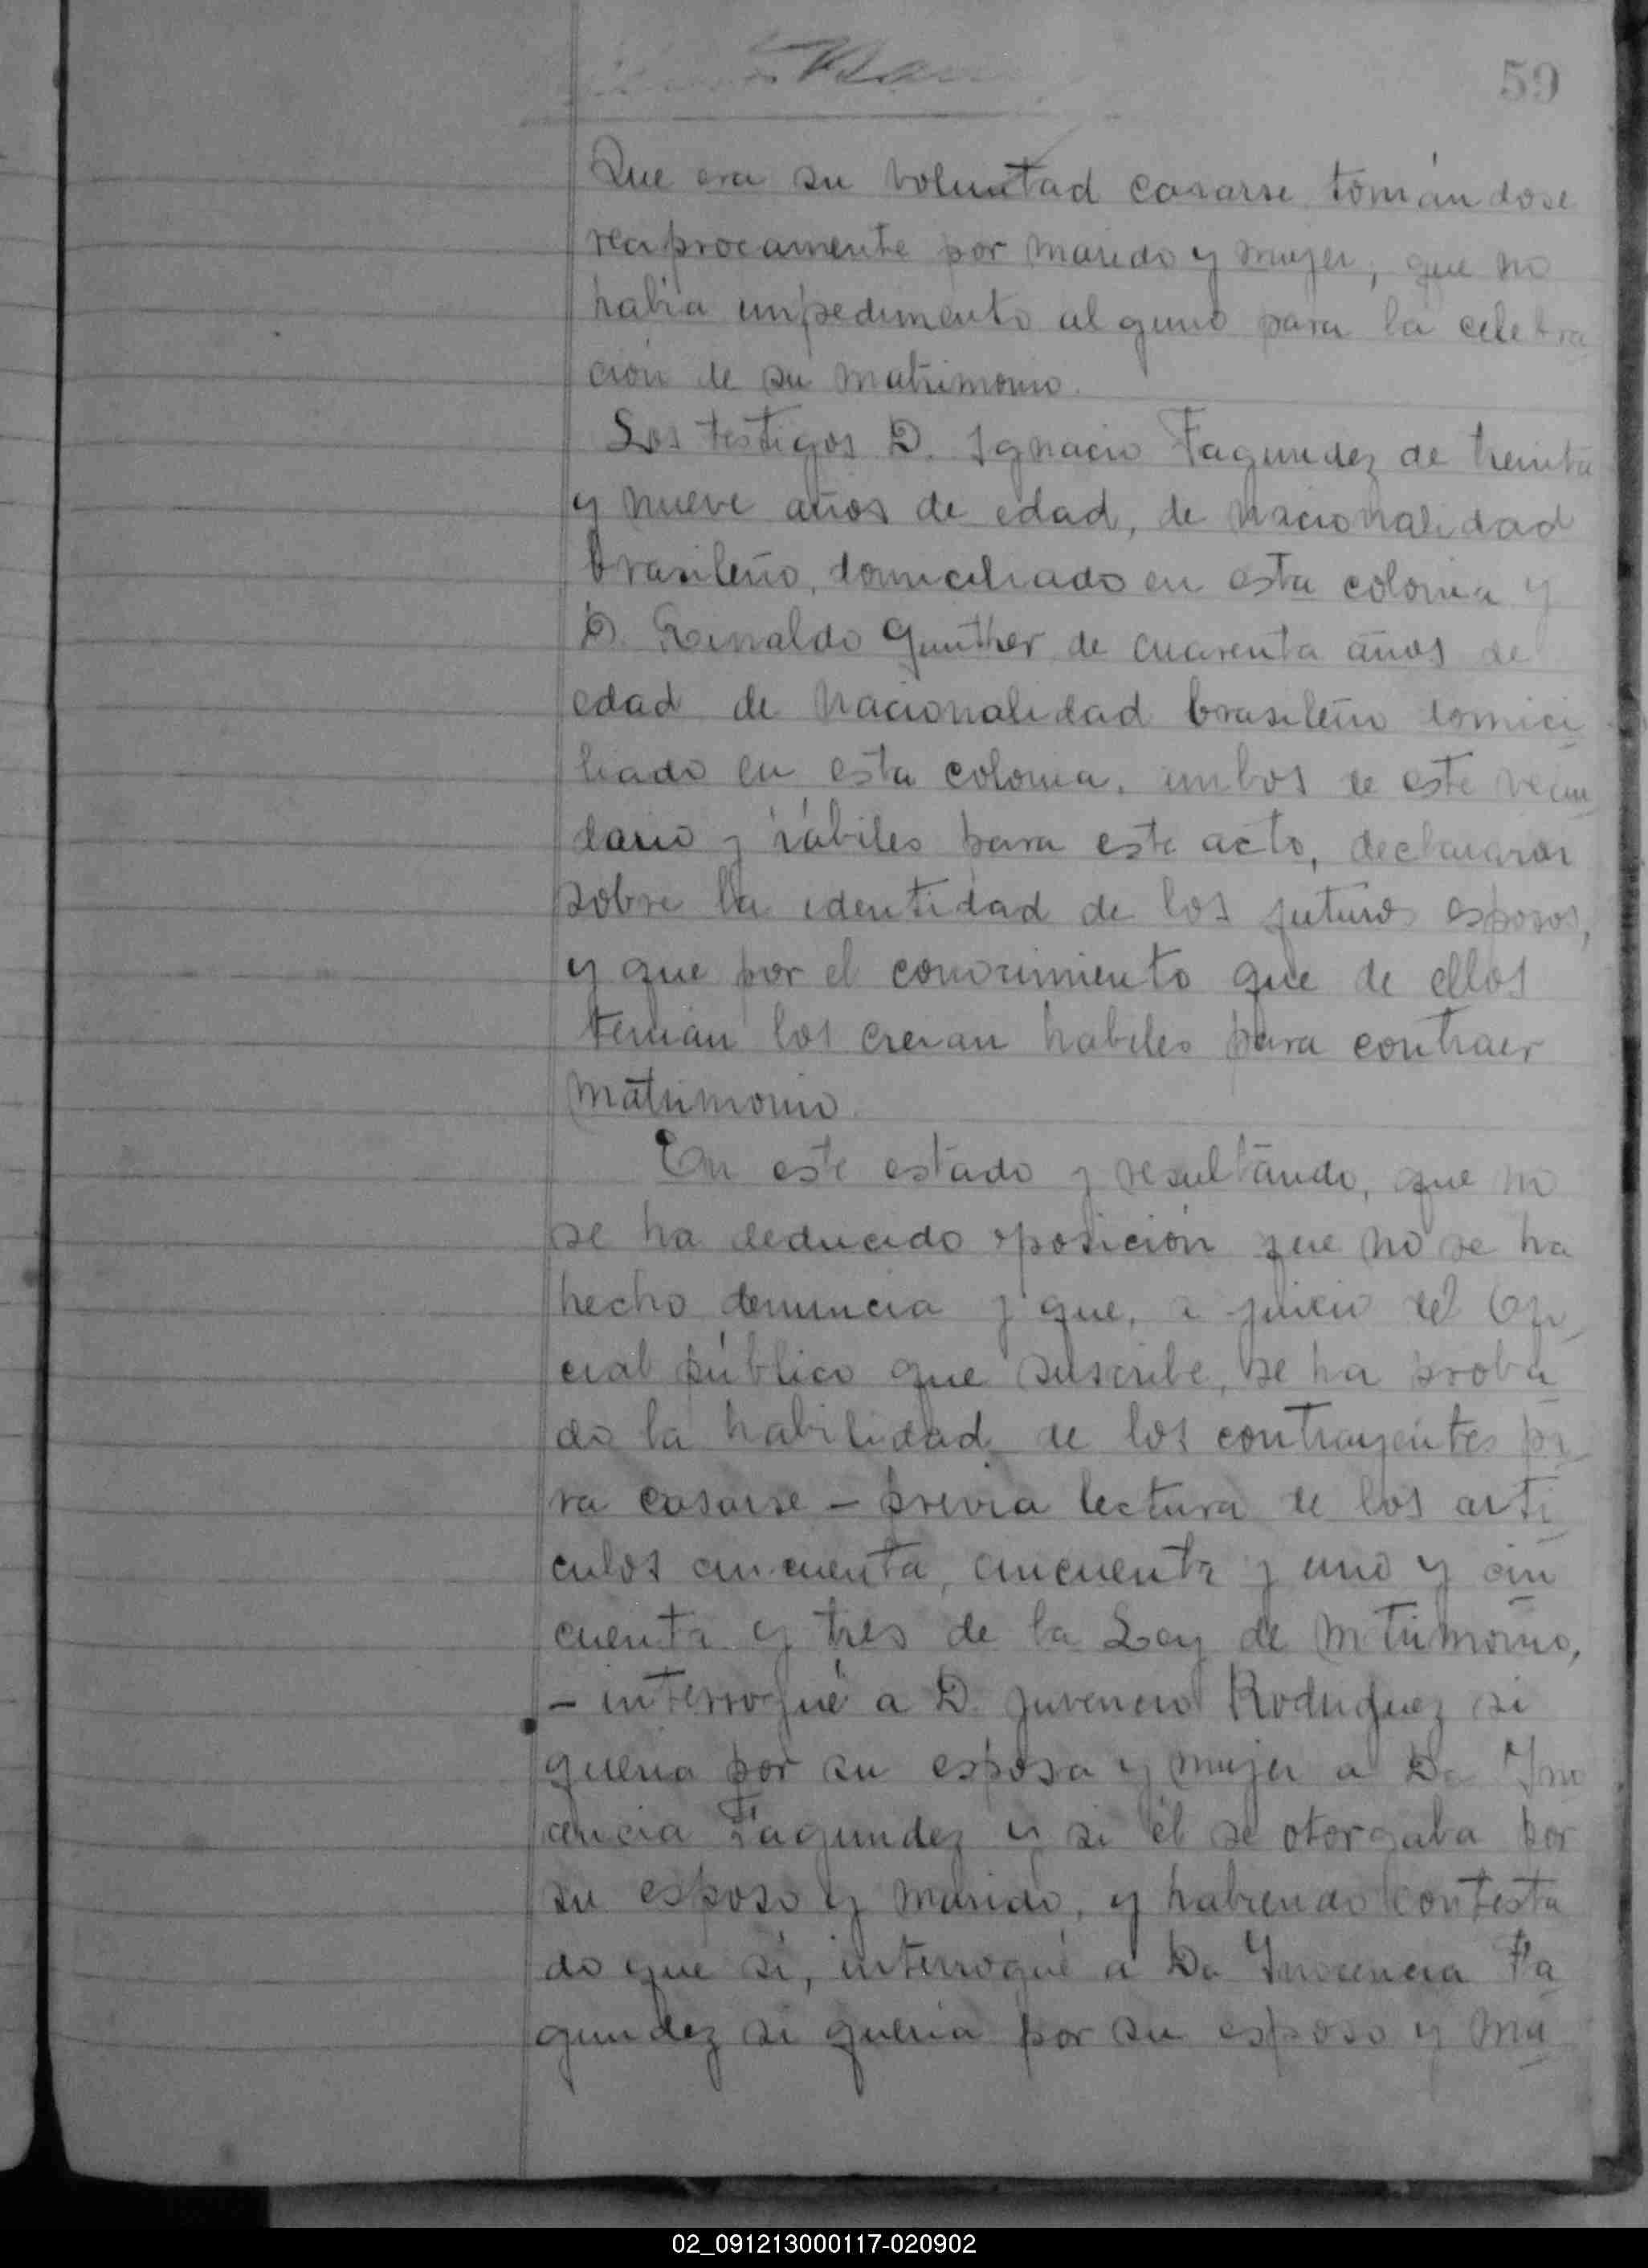 59
Que era su voluntad casarse tomándose
reciprocamente por marido y mujer, que no
había impedimento alguno para la celebra
ción de su matrimonio.
Los testigos D. Ignacio Fagundez de treinta
y nueve años de edad, de nacionalidad
brasileño, domiciliado en esta colonia y
D. Reinaldo Gunther de cuarenta años de
edad de nacionalidad brasileño domici
liado en esta colonia, ambos de este vecin
dario y hábiles para este acto, declararon
sobre la identidad de los futuros esposos,
y que por el conocimiento que de ellos
tenian los creian habiles para contraer
matrimonio.
En este estado y resultando, que no
se ha deducido oposición que no se ha
hecho denuncia y que, a juicio del Ofi
cial público que suscribe, se ha proba
do la habilidad de los contrayentes pa
ra casarse – previa lectura de los arti
culos cincuenta, cincuenta y uno y cin
cuenta y tres de la Ley de Mtrimonio,
– interrogué a D. Juvencio Rodriguez si
queria por su esposa y mujer a Da Ino
cencia Fagundez y si él se otorgaba por
su esposo y marido, y habiendo contesta
do que si, interrogué a Da Inocencia Fa
gundez si queria por su esposo y ma
02_091213000117-020902